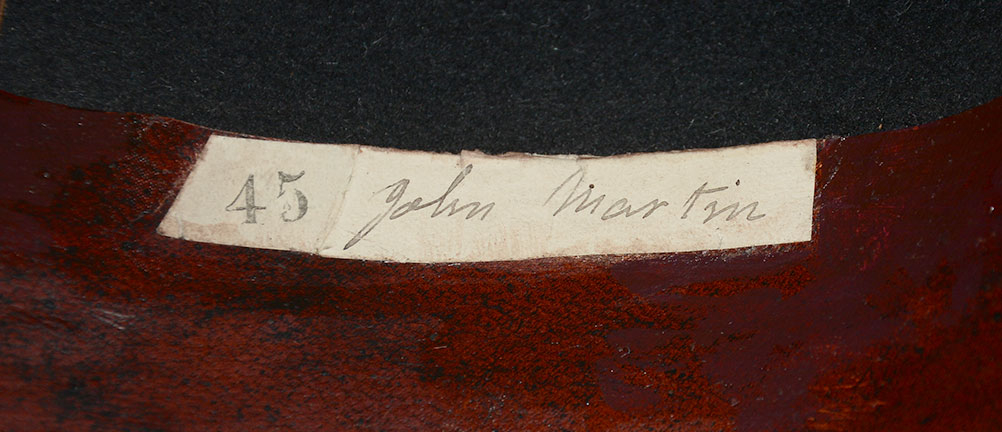 45 John Martin